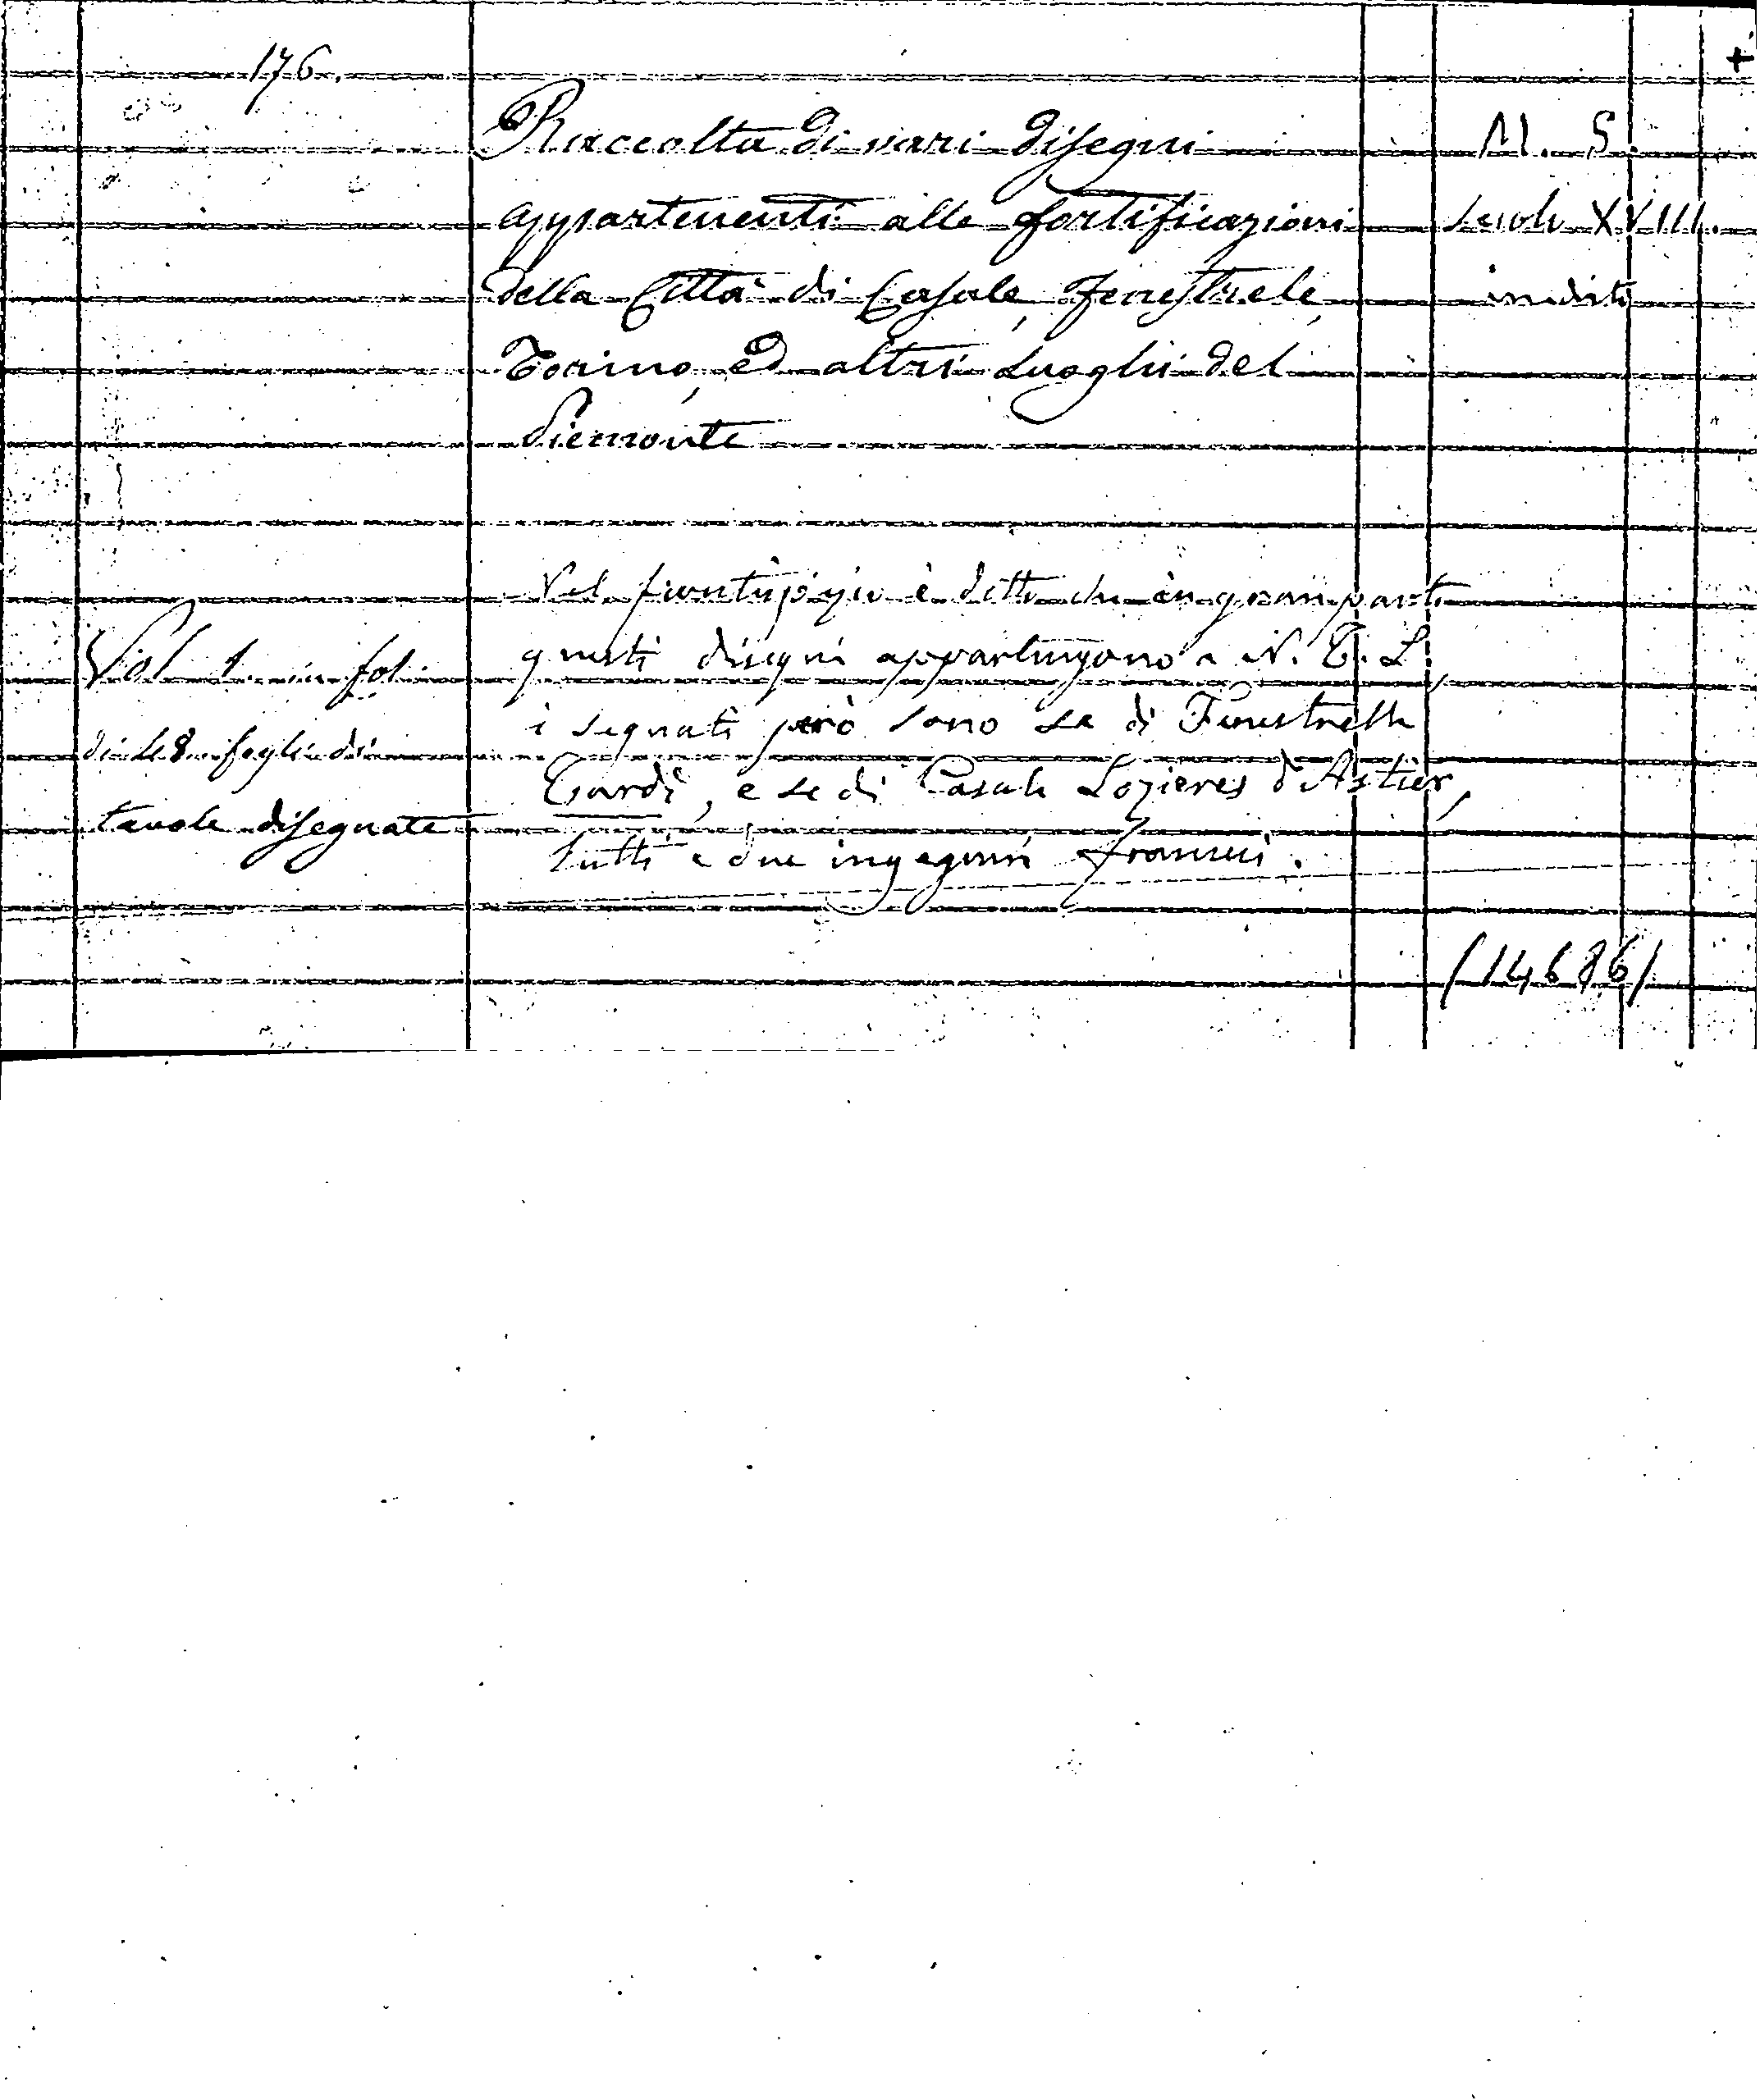 176.
+
Raccolta di vari Disegni
appartenenti alle fortificazioni
della Città di Casale, Fenestrele,
Torino, ed altri Luoghi del
Piemonte
M. S.
secolo XVIII.
inedito
Vol. 1. in fol.
di 48 fogli di
tavole disegnate
Nel frontispizio è detto che in gran parte
questi disegni appartengono a N. T. L.
i segnati però sono se di Finestrelle
Tardì, e se di Casale Lozieres d'Astier,
tutti e due ingegneri francesi.
(14686)